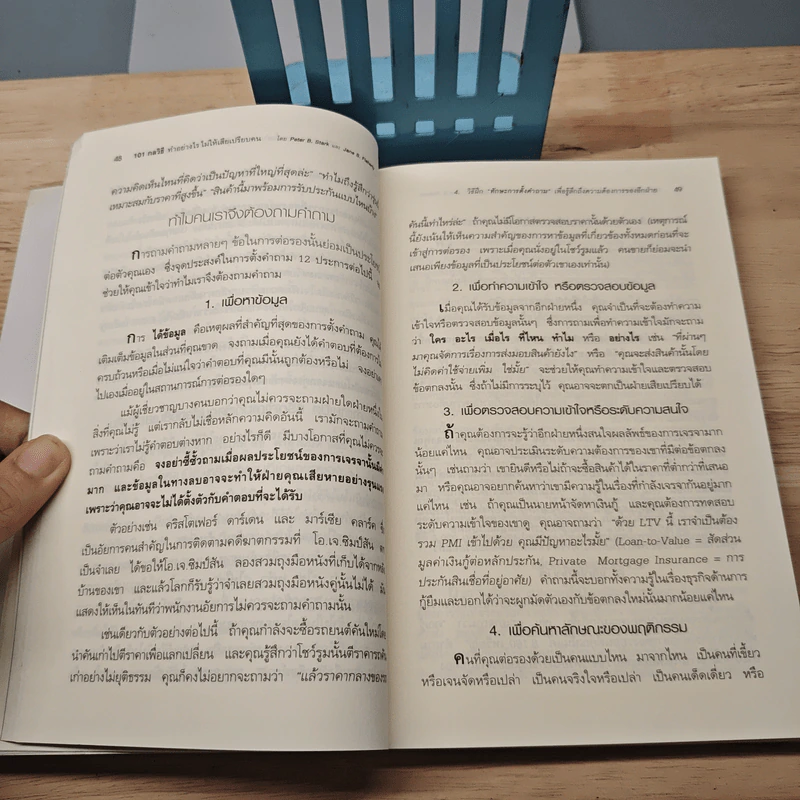 48 101 กลวิธี ทำอย่างไร ไม่ให้เสียเปรียบคน โดย Peter B. Stark และ Jane S.
ความคิดเห็นไหนที่คิดว่าเป็นปัญหาที่ใหญ่ที่สุดล่ะ" "ทำไมถึงรู้สึกว่า
เหมาะสมกับราคาที่สูงขึ้น" "สินค้านี้มาพร้อมการรับประกันแบบไหน
ทำไมคนเราจึงต้องถามคำถาม
การถามคำถามหลายๆ ข้อในการต่อรองนั้นย่อมเป็นประโยชน์
ต่อตัวคุณเอง ซึ่งจุดประสงค์ในการตั้งคำถาม 12 ประการต่อไปนี้
ช่วยให้คุณเข้าใจว่าทำไมเราจึงต้องถามคำถาม
1. เพื่อหาข้อมูล
การ ได้ข้อมูล คือเหตุผลที่สำคัญที่สุดของการตั้งคำถาม
เติมเต็มข้อมูลในส่วนที่ขาด จงถามเมื่อคุณยังได้คำตอบที่ต้องการ
ครบถ้วนหรือเมื่อไม่แน่ใจว่าคำตอบที่คุณมีนั้นถูกต้องหรือไม่
ไปเองเมื่ออยู่ในสถานการณ์การต่อรองใดๆ
แม้ผู้เชี่ยวชาญบางคนบอกว่าคุณไม่ควรจะถามฝ่ายใดฝ่ายหนึ่ง
สิ่งที่คุณไม่รู้ แต่เรากลับไม่เชื่อหลักความคิดอันนี้ เรามักจะถามคำถาม
เพราะว่าเราไม่รู้คำตอบต่างหาก อย่างไรก็ดี มีบางโอกาสที่คุณไม่ควรจะ
ถามคำถามคือ จงอย่าซี้ซั้วถามเมื่อผลประโยชน์ของการเจรจานั้น
มาก และข้อมูลในทางลบอาจจะทำให้ฝ่ายคุณเสียหายอย่างรุนแรง
เพราะว่าคุณอาจจะไม่ได้ตั้งตัวกับคำตอบที่จะได้รับ
ตัวอย่างเช่น คริสโตเฟอร์ ดาร์เดน และ มาร์เซีย คลาร์ค
เป็นอัยการคนสำคัญในการติดตามคดีฆาตกรรมที่ โอ.เจ.ซิมป์สัน
เป็นจำเลย ได้ขอให้โอ.เจ.ซิมป์สัน ลองสวมถุงมือหนังที่เก็บได้จาก
บ้านของเขา และแล้วโลกก็รับรู้ว่าจำเลยสวมถุงมือหนังคู่นั้นไม่ได้
แสดงให้เห็นในทันทีว่าพนักงานอัยการไม่ควรจะถามคำถามนั้น
เช่นเดียวกับตัวอย่างต่อไปนี้ ถ้าคุณกำลังจะซื้อรถยนต์คันใหม่โดย
นำคันเก่าไปตีราคาเพื่อแลกเปลี่ยน และคุณรู้สึกว่าโชว์รูมนั้นตีราคารถคัน
เก่าอย่างไม่ยุติธรรม คุณก็คงไม่อยากจะถามว่า "แล้วราคากลางของรถ
4. วิธีฝึก "ทักษะการตั้งคำถาม" เพื่อรู้ลึกถึงความต้องการของอีกฝ่าย 49
คันนี้เท่าไหร่ล่ะ" ถ้าคุณไม่มีโอกาสตรวจสอบราคานั้นด้วยตัวเอง (เหตุการณ์
นี้ยังเน้นให้เห็นความสำคัญของการหาข้อมูลที่เกี่ยวข้องทั้งหมดก่อนที่จะ
เข้าสู่การต่อรอง เพราะเมื่อคุณนั่งอยู่ในโชว์รูมแล้ว คนขายก็ย่อมจะนำ
เสนอเพียงข้อมูลที่เป็นประโยชน์ต่อตัวเขาเองเท่านั้น)
2. เพื่อทำความเข้าใจ หรือตรวจสอบข้อมูล
เมื่อคุณได้รับข้อมูลจากอีกฝ่ายหนึ่ง คุณจำเป็นที่จะต้องทำความ
เข้าใจหรือตรวจสอบข้อมูลนั้นๆ ซึ่งการถามเพื่อทำความเข้าใจมักจะถาม
ว่า ใคร อะไร เมื่อไร ที่ไหน ทำไม หรือ อย่างไร เช่น "ที่ผ่านๆ
มาคุณจัดการเรื่องการส่งมอบสินค้ายังไง" หรือ "คุณจะส่งสินค้านั้นโดย
ไม่คิดค่าใช้จ่ายเพิ่ม ใช่มั้ย" จะช่วยให้คุณทำความเข้าใจและตรวจสอบ
ข้อตกลงนั้น ซึ่งถ้าไม่มีการระบุไว้ คุณอาจจะตกเป็นฝ่ายเสียเปรียบได้
3. เพื่อตรวจสอบความเข้าใจหรือระดับความสนใจ
ถ้าคุณต้องการจะรู้ว่าอีกฝ่ายหนึ่งสนใจผลลัพธ์ของการเจรจามาก
น้อยแค่ไหน คุณอาจประเมินระดับความต้องการของเขาที่มีต่อข้อตกลง
นั้นๆ เช่นถามว่า เขายินดีหรือไม่ถ้าจะซื้อสินค้าได้ในราคาที่ต่ำกว่าที่เสนอ
มา หรือคุณอาจอยากค้นหาว่าเขามีความรู้ในเรื่องที่กำลังเจรจากันอยู่มาก
แค่ไหน เช่น ถ้าคุณเป็นนายหน้าจัดหาเงินกู้ และคุณต้องการทดสอบ
ระดับความเข้าใจของเขาดู คุณอาจถามว่า "ด้วย LTV นี้ เราจำเป็นต้อง
รวม PMI เข้าไปด้วย คุณมีปัญหาอะไรมั้ย" (Loan-to-Value = สัดส่วน
มูลค่าเงินกู้ต่อหลักประกัน, Private Mortgage Insurance = การ
ประกันสินเชื่อที่อยู่อาศัย) คำถามนี้จะบอกทั้งความรู้ในเรื่องธุรกิจด้านการ
กู้ยืมและบอกได้ว่าจะผูกมัดตัวเองกับข้อตกลงใหม่นั้นมากน้อยแค่ไหน
4. เพื่อค้นหาลักษณะของพฤติกรรม
คนที่คุณต่อรองด้วยเป็นคนแบบไหน มาจากไหน เป็นคนที่เขี้ยว
หรือเจนจัดหรือเปล่า เป็นคนจริงใจหรือเปล่า เป็นคนเด็ดเดี่ยว หรือ